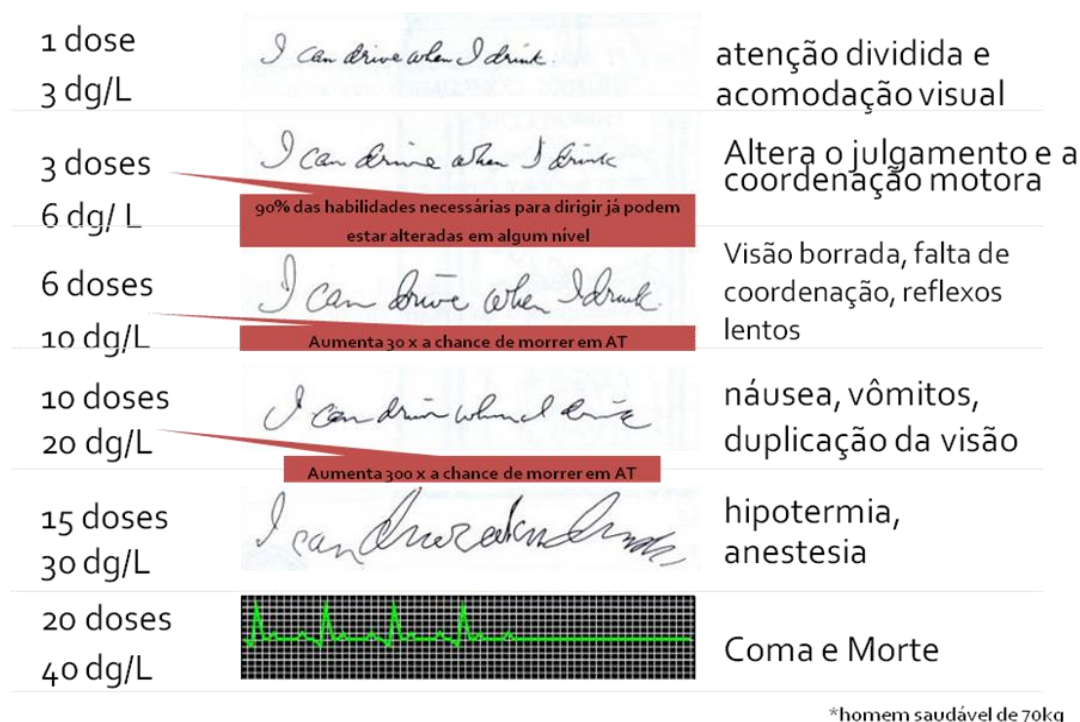 1 dose
3 dg/L
I can drive when I drink.
atenção dividida e
acomodação visual
3 doses
6 dg/ L
I can drive when I drink
90% das habilidades necessárias para dirigir já podem
estar alteradas em algum nível
Altera o julgamento e a
coordenação motora
6 doses
10 dg/L
I can drive when I drink.
Aumenta 30 x a chance de morrer em AT
Visão borrada, falta de
coordenação, reflexos
lentos
10 doses
20 dg/L
I can drive when I drink
Aumenta 300 x a chance de morrer em AT
náusea, vômitos,
duplicação da visão
15 doses
30 dg/L
I can
hipotermia,
anestesia
20 doses
40 dg/L
Coma e Morte
*homem saudável de 70kg